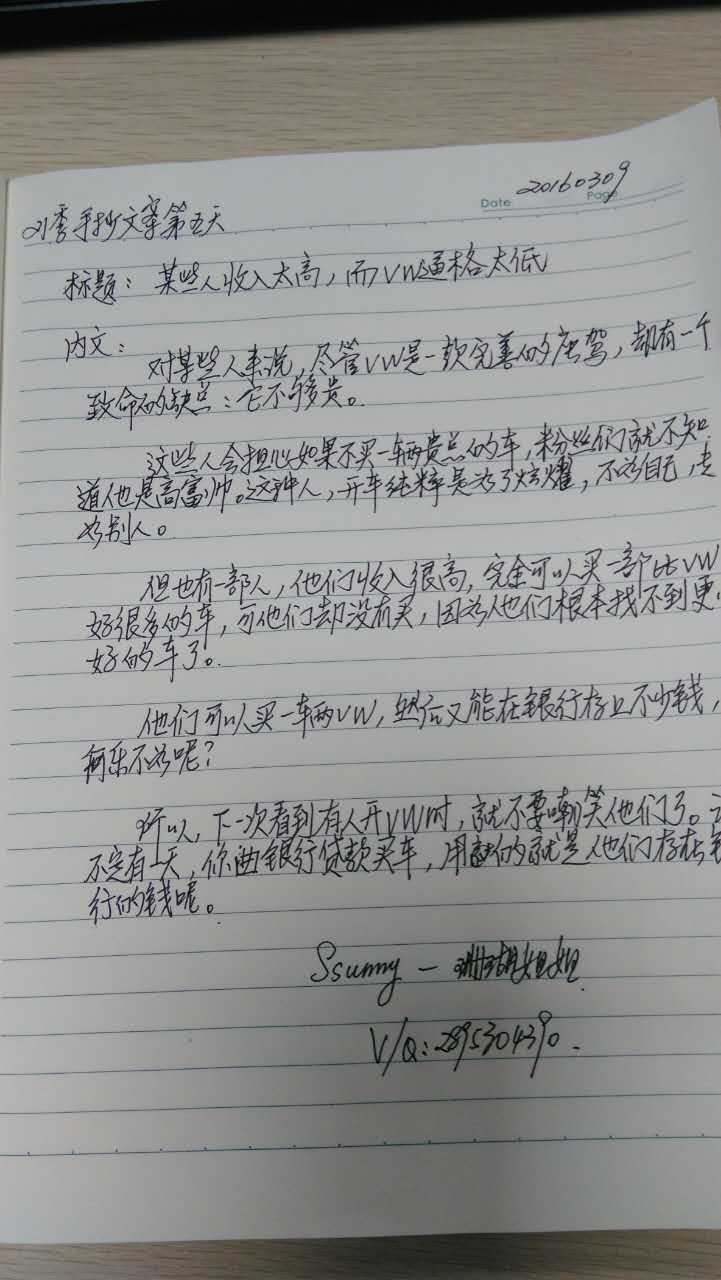 Date 20160309
Page
21季手抄文案第五天
标题：某些人收入太高，而VW逼格太低
内文：
对某些人来说，尽管VW是一款完善的座驾，却有一个
致命的缺点：它不够贵。
这些人会担心如果不买一辆贵点的车，粉丝们就不知
道他是高富帅。这种人，开车纯粹是为了炫耀，不为自己，
为别人。
但也有一部人，他们收入很高，完全可以买一部比VW
好很多的车，可他们却没有买，因为他们根本找不到更
好的车了。
他们可以买一车两VW，然后又能在银行存上不少钱，
何乐不为呢？
所以，下一次看到有人开VW时，就不要嘲笑他们了。
不定有一天，你由银行贷款买车，用的就是他们存在
行的钱呢。
Ssunny － 珊瑚姐姐
V/Q：2895304390.